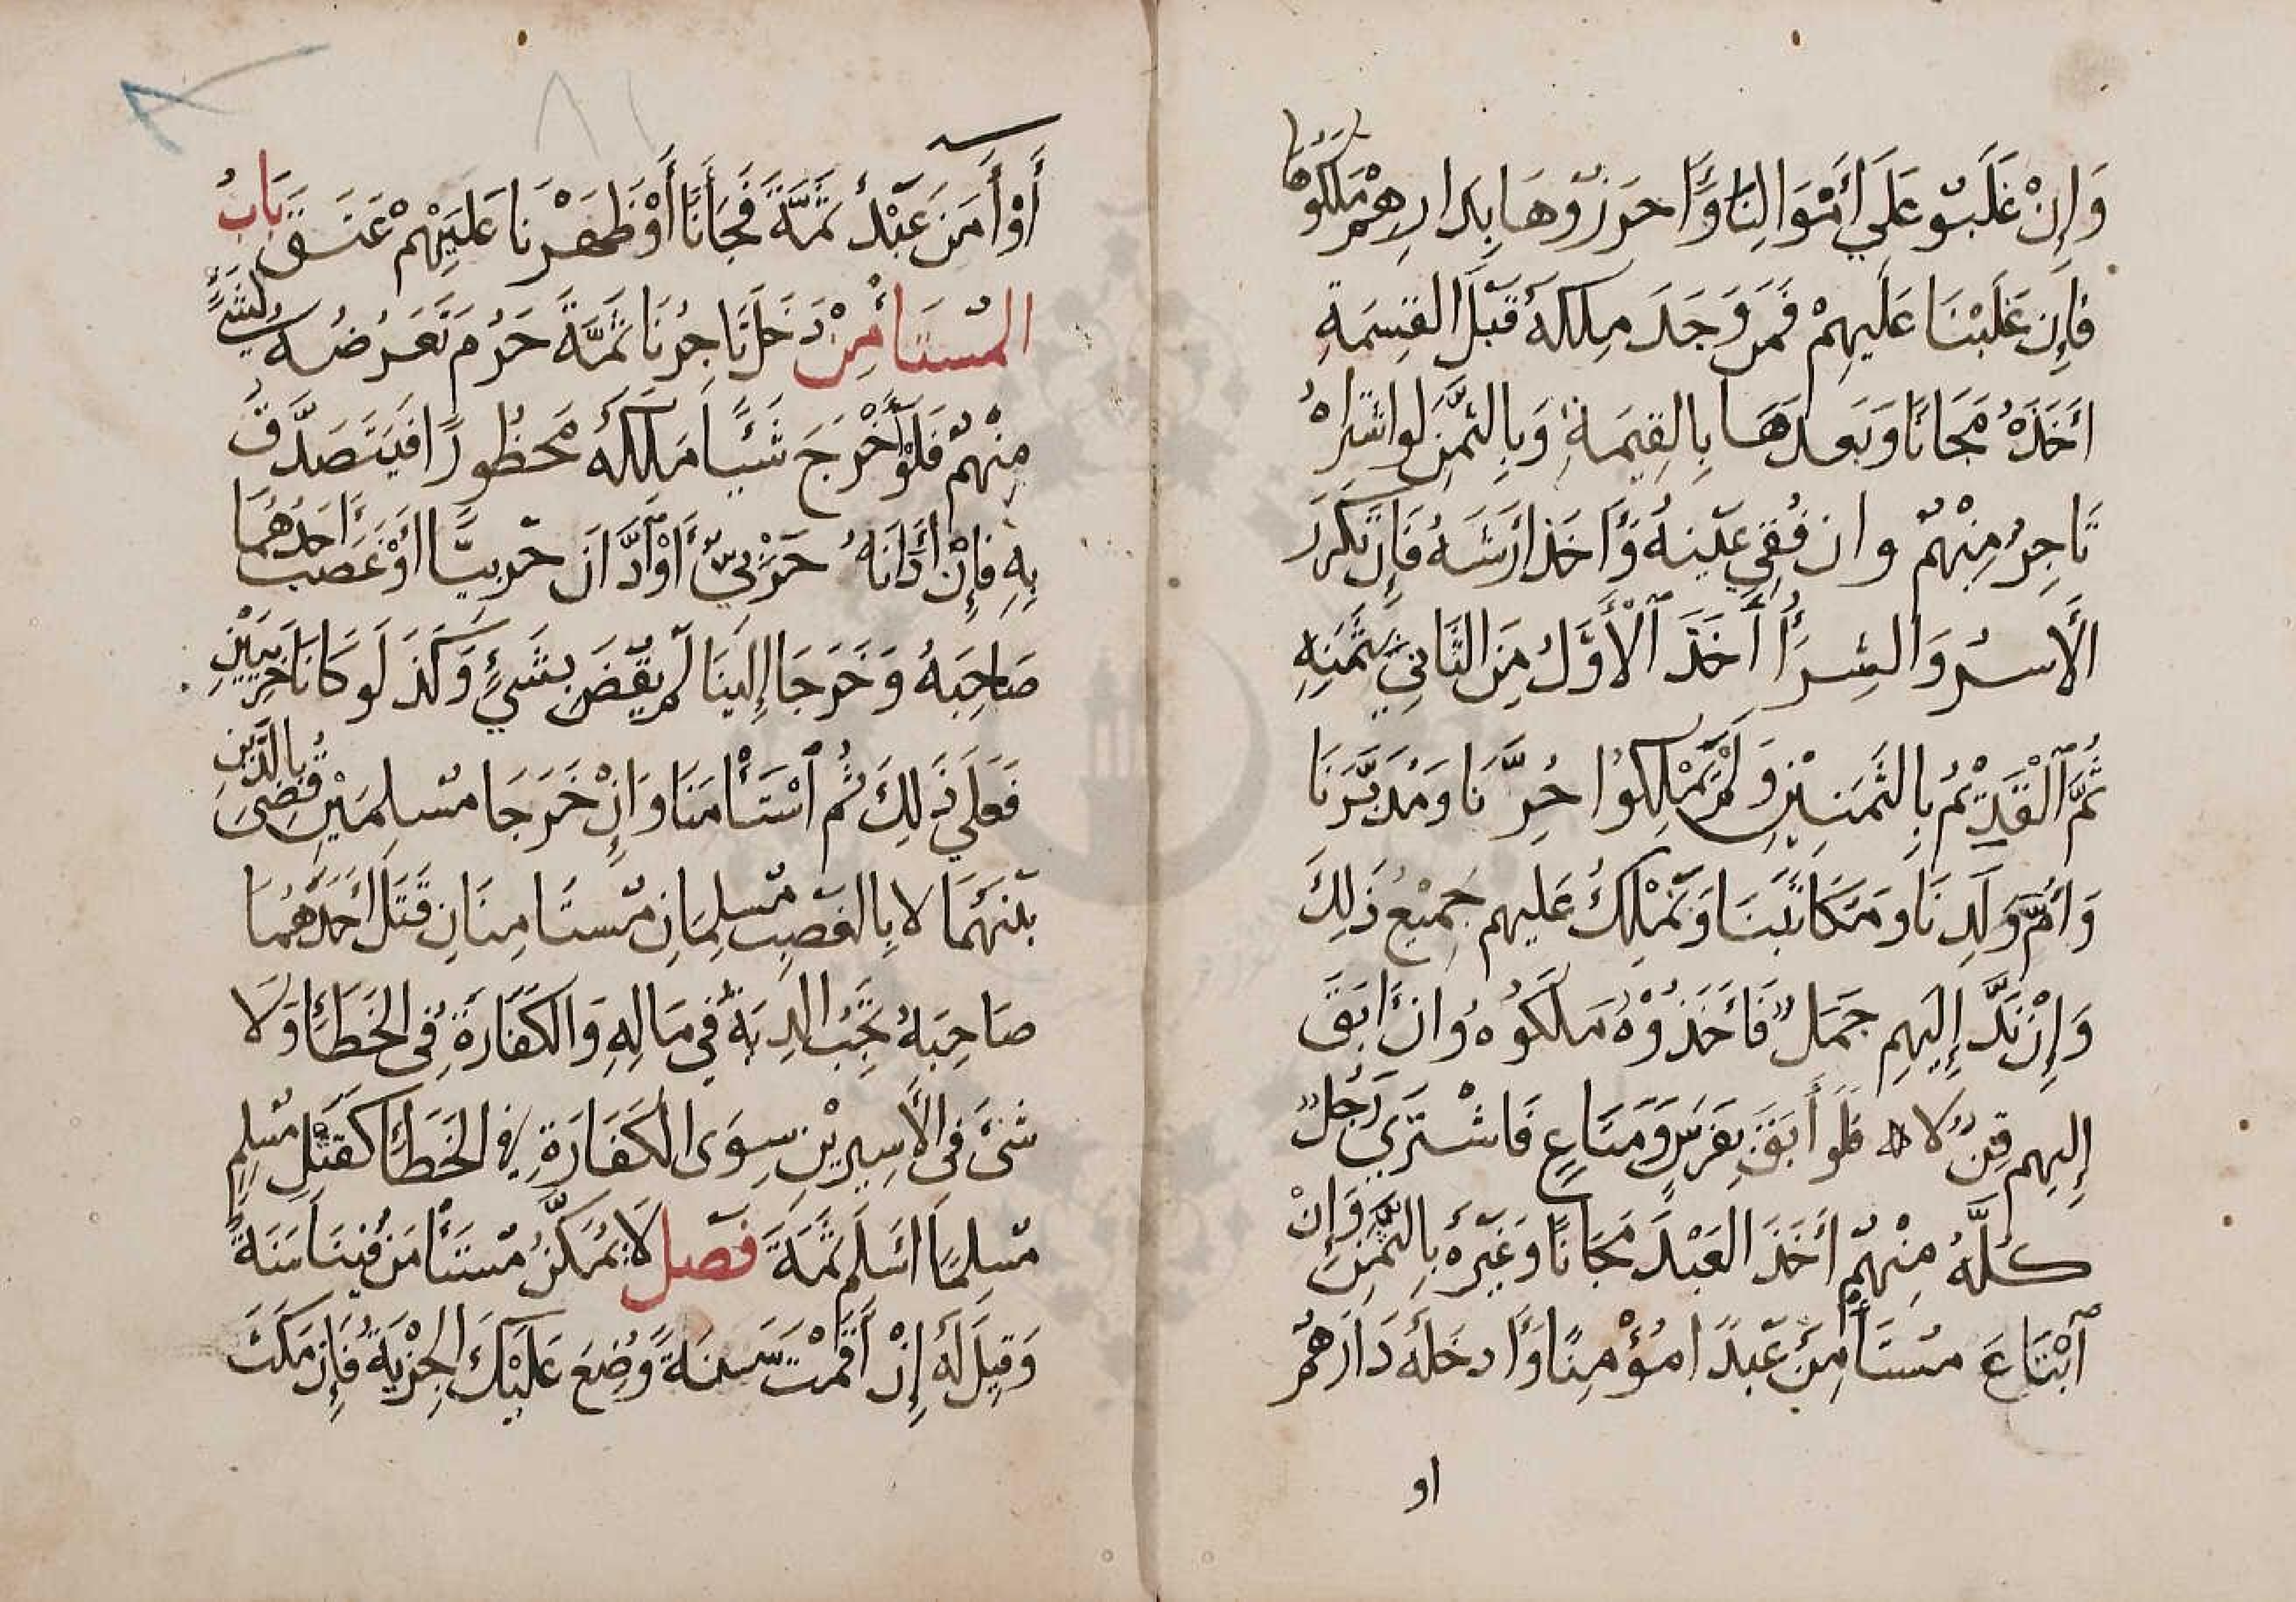 وَإِنْ غَلَبُو عَلَى أَمْوَالِنَا وَأَحرَزُوهَا بِدَارِهِمْ مَلَكُوهَا
فَإِن غَلَبْنَا عَلَيهِمْ فَمَن وَجَدَ مِلكَهُ قَبْلَ القِسمَةِ
اَخَذَهُ مَجَانًا وَبَعدَهَا بِالقِيمَةِ وَبِالثَّمَنِ لَو اشتَرَاهُ
تَاجِرٌ مِنْهُمْ وان فُقِئَ عَينهُ وَأَخَذَ ارشَهُ فَإِن تَكَرَّرَ
الأَسرُ وَالشِرَأُ أَخَذَ ٱلْأَوَّلُ مِنَ الثَّانِي بِثَمَنِهِ
ثُمَّ ٱلْقَدِيْمُ بِالثَّمَنَيْنِ وَلَمْ يَمْلِكُوا حُرَّنَا وَمُدَبَّرَنَا
وَأُمَّ وَلَدِنَا وَمَكَاتَبَنَا وَنَمْلِكُ عَلَيهِم جَمِيْعَ ذَلِكَ
وَإِنْ نَدَّ إِلَيهِم جَمَلٌ فَأَخَذُوْهُ مَلَكُوْهُ وَانْ اَبَقَ
إِلَيهِم قِنٌّ لَا فَلَو أَبَقَ بِفَرَسٍ وَمَتَاعٍ فَاشْتَرَي رَجُلٌ
كُلَّهُ مِنْهُمْ اَخَذَ العَبْدَ مَجَانًا وَغَيْرَهُ بِالثَّمَنِ وَإِنْ
ٱبْتَاعَ مُستَأْمِنٌ عَبدًا مُؤْمِنًا وَأَدخَلَهُ دَارَهُمْ
او
أَوْ أَمَنَ عَبْدٌ ثَمَّةَ فَجَاءَنَا أَوْ ظَهَرْنَا عَلَيْهِمْ عَتَقَ بَابُ
المُستَأْمِنْ دَخَلَ تَاجِرُنَا ثَمَّةَ حَرُمَ تَعَرُضُه لِشَيءٍ
مِنْهُمْ فَلَوْ أَخْرَجَ شَيْئًا مَلَكَهُ مَحظُورًا فَيَتَصَدَّقُ
بِهِ فَإِنْ أَدَانَهُ حَرْبِيٌّ أَوْ أَدَّانَ حَربِيًّا أَوْ غَصَبَ اَحَدُهُمَا
صَاحِبَهُ وَخَرَجَا إِلَينَا لَمْ يُقْضَ بِشَيءٍ وَكَذَ لَو كَانَا حَربِيَّيْنِ
فَعَلَى ذَلِكَ ثُمَّ ٱسْتَأْمَنَا وَاِنْ خَرَجَا مُسلِمَيْنِ قُضِيَ بِالدَّيْنِ
بَيْنَهُمَا لا بِالغَصبِ مُسلِمَانِ مُستَامِنَانِ قَتَلَ اَحَدُهُمَا
صَاحِبَهُ تَجِبُ الدِيَةُ فِي مَالِهِ وَالكَفَّارَةُ فِي الخَطَأِ وَلَا
شَئَ فِي الأَسِيرَيْنِ سِوَى الكَفَارَةِ فِي الخَطَأ كَقَتْلِ مُسلِمٍ
مُسلِمًا اَسْلَمَ ثَمَّةَ فَصل لَا يُمَكَّنُ مُستَأْمَن فِينَا سَنَةً
وَقِيلَ لَهُ إِنْ أَقَمْتَ سَنَةً وُضِعَ عَلَيْكَ الجِزْيَةُ فَإِن مَكَثَ